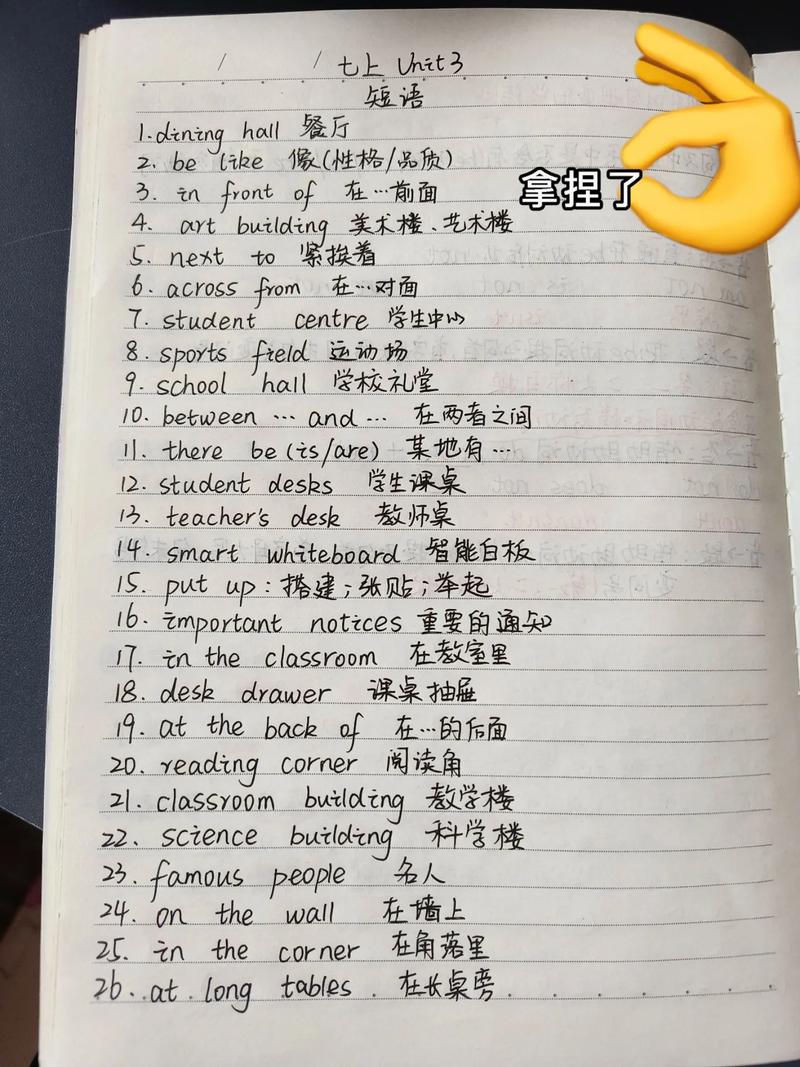 七上 Unit 3
短语
1. dining hall 餐厅
2. be like 像(性格/品质)
3. in front of 在…前面
拿捏了
4. art building 美术楼、艺术楼
5. next to 紧挨着
6. across from 在…对面
7. student centre 学生中心
8. sports field 运动场
9. school hall 学校礼堂
10. between … and … 在两者之间
11. there be (is/are) 某地有…
12. student desks 学生课桌
13. teacher's desk 教师桌
14. smart whiteboard 智能白板
15. put up : 搭建;张贴;举起
16. important notices 重要的通知
17. in the classroom 在教室里
18. desk drawer 课桌抽屉
19. at the back of 在…的后面
20. reading corner 阅读角
21. classroom building 教学楼
22. science building 科学楼
23. famous people 名人
24. on the wall 在墙上
25. in the corner 在角落里
26. at long tables 在长桌旁